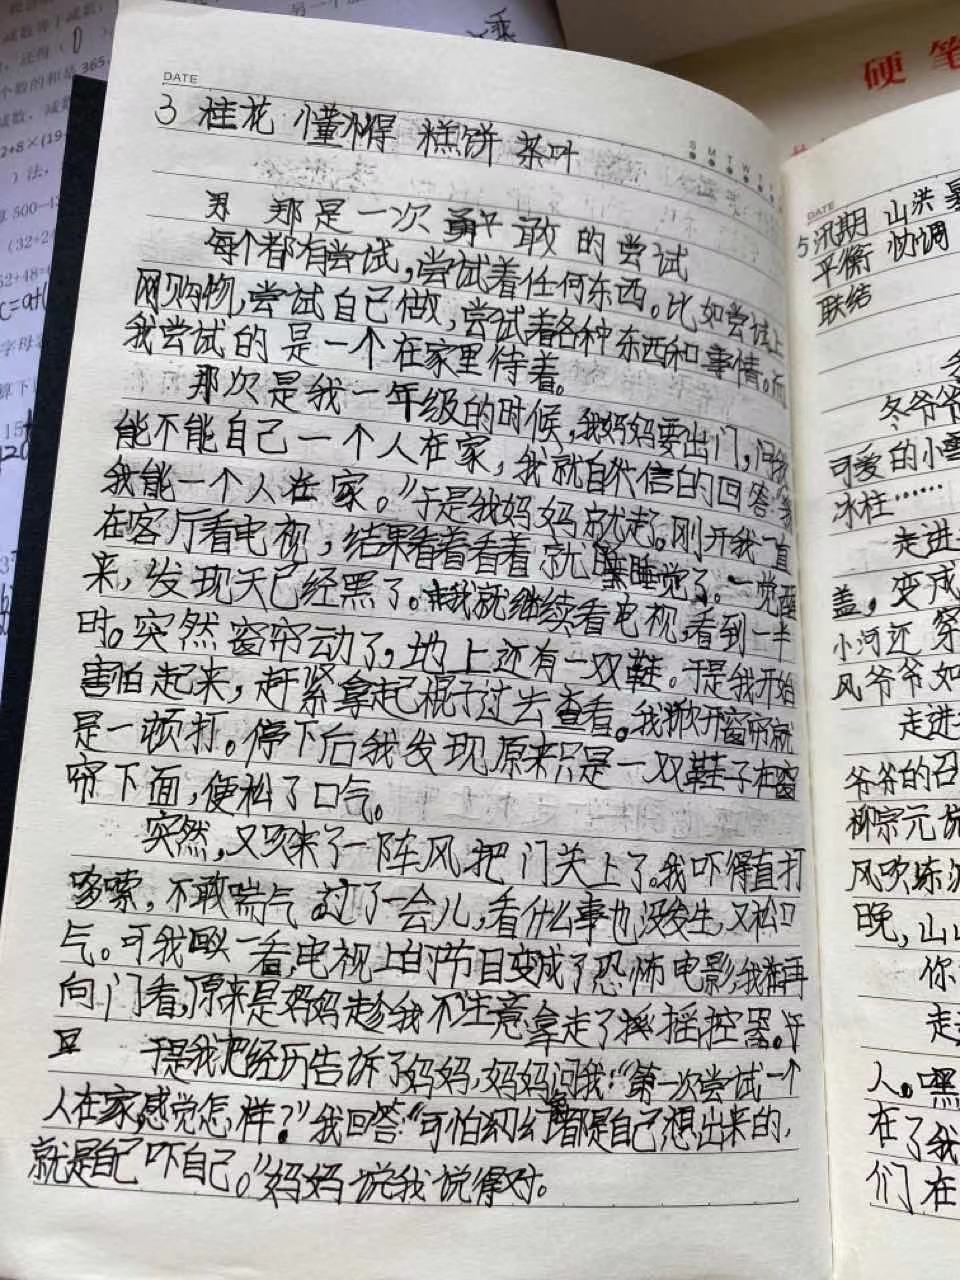 DATE
3 桂花 懂得 糕饼 茶叶
那是一次勇敢的尝试
每个都有尝试，尝试着任何东西。比如尝试上
网购物，尝试自己做，尝试着各种东西和事情。而
我尝试的是一个在家里待着。
那次是我一年级的时候，我妈妈要出门，问我
能不能自己一个人在家，我就自信的回答“我
我能一个人在家。”于是我妈妈就走了。刚开我一直
在客厅看电视，结果看着看着就睡觉了。一觉醒
来，发现天已经黑了。我就继续看电视，看到一半
时。突然窗帘动了，地上还有一双鞋。于是我开始
害怕起来，赶紧拿起棍子过去查看。我掀开窗帘就
是一顿打。停下后我发现原来只是一双鞋子在窗
帘下面，便松了口气。
突然，又吹来了一阵风把门关上了。我吓得直打
哆嗦，不敢喘气。过了一会儿，看什么事也没发生，又松口
气。可我一看，电视上的节目变成了恐怖电影，我再
向门看，原来是妈妈趁我不注意拿走了摇控器。
于是我把经历告诉了妈妈，妈妈问我：“第一次尝试一个
人在家，感觉怎样？”我回答：“可怕的幻都是自己想出来的，
就是自己吓自己。”妈妈说我说得对。
S M T W T
硬笔
DATE
5 汛期 山洪暴
平衡 协调
联结
冬爷爷
可爱的小雪
冰柱……
走进
盖，变成
小河还穿
风爷爷如
走进
爷爷的召
柳宗元
风吹
晚，山
你
走
人。嘿
在了我
们在